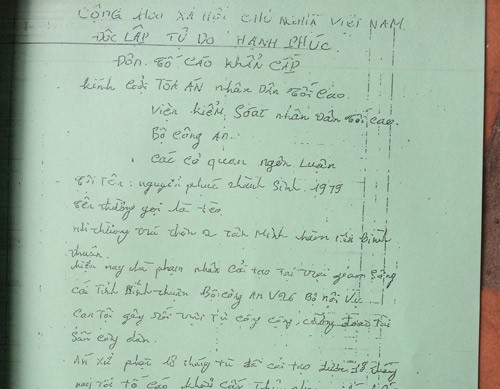 CỘNG HÒA XÃ HỘI CHỦ NGHĨA VIỆT NAM
ĐỘC LẬP TỰ DO HẠNH PHÚC
ĐƠN TỐ CÁO KHẨN CẤP
kính Gởi TÒA ÁN nhân Dân Tối Cao.
Viện kiểm Soát nhân Dân Tối Cao.
Bộ Công An.
Các cơ quan ngôn Luận
Tôi Tên: nguyễn phúc thành Sinh 1979
Tên thường gọi là tèo
nơi thường trú thôn 2 Tân Minh hàm Bình
thuận.
hiện nay là phạm nhân Cải tạo Tại trại giam Sông
cái Tỉnh thuận Bộ Công An V26 Bộ nội Vụ
Can Tội gây rối trật Tự Công Cộng, Cưỡng đoạt Tài
Sản Công dân.
Án xử phạt 18 tháng tù đã cải tạo được 18 tháng
nay tôi tố cáo khẩn cấp